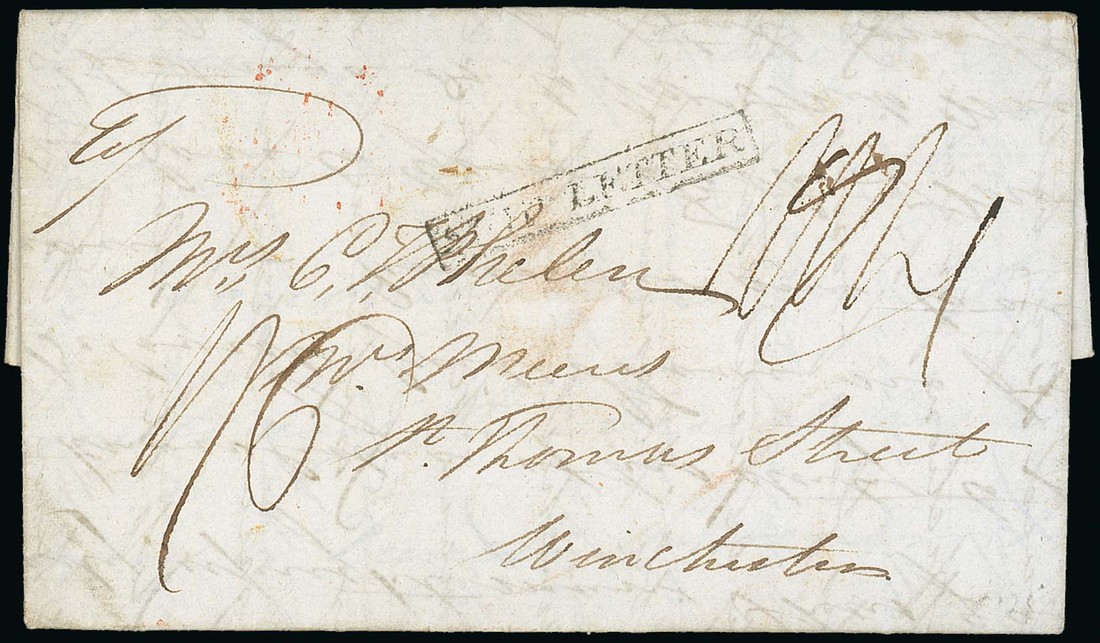 SHIP LETTER
Mrs. C. Whelen
Mrs. Meers
St. Thomas Street
Winchester